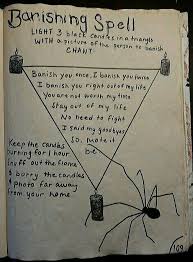 Banishing Spell
LIGHT 3 black candles in a triangle
WITH a picture of the person to banish
CHANT:
Banish you once, I banish you twice
I banish you right out of my life
You are not worth my time
Stay out of my life
No need to fight
I said my goodbyes
So, mote it
be
Keep the candles
burning for 1 hour
Snuff out the flame
& burry the candles
& photo far away
from your home
109